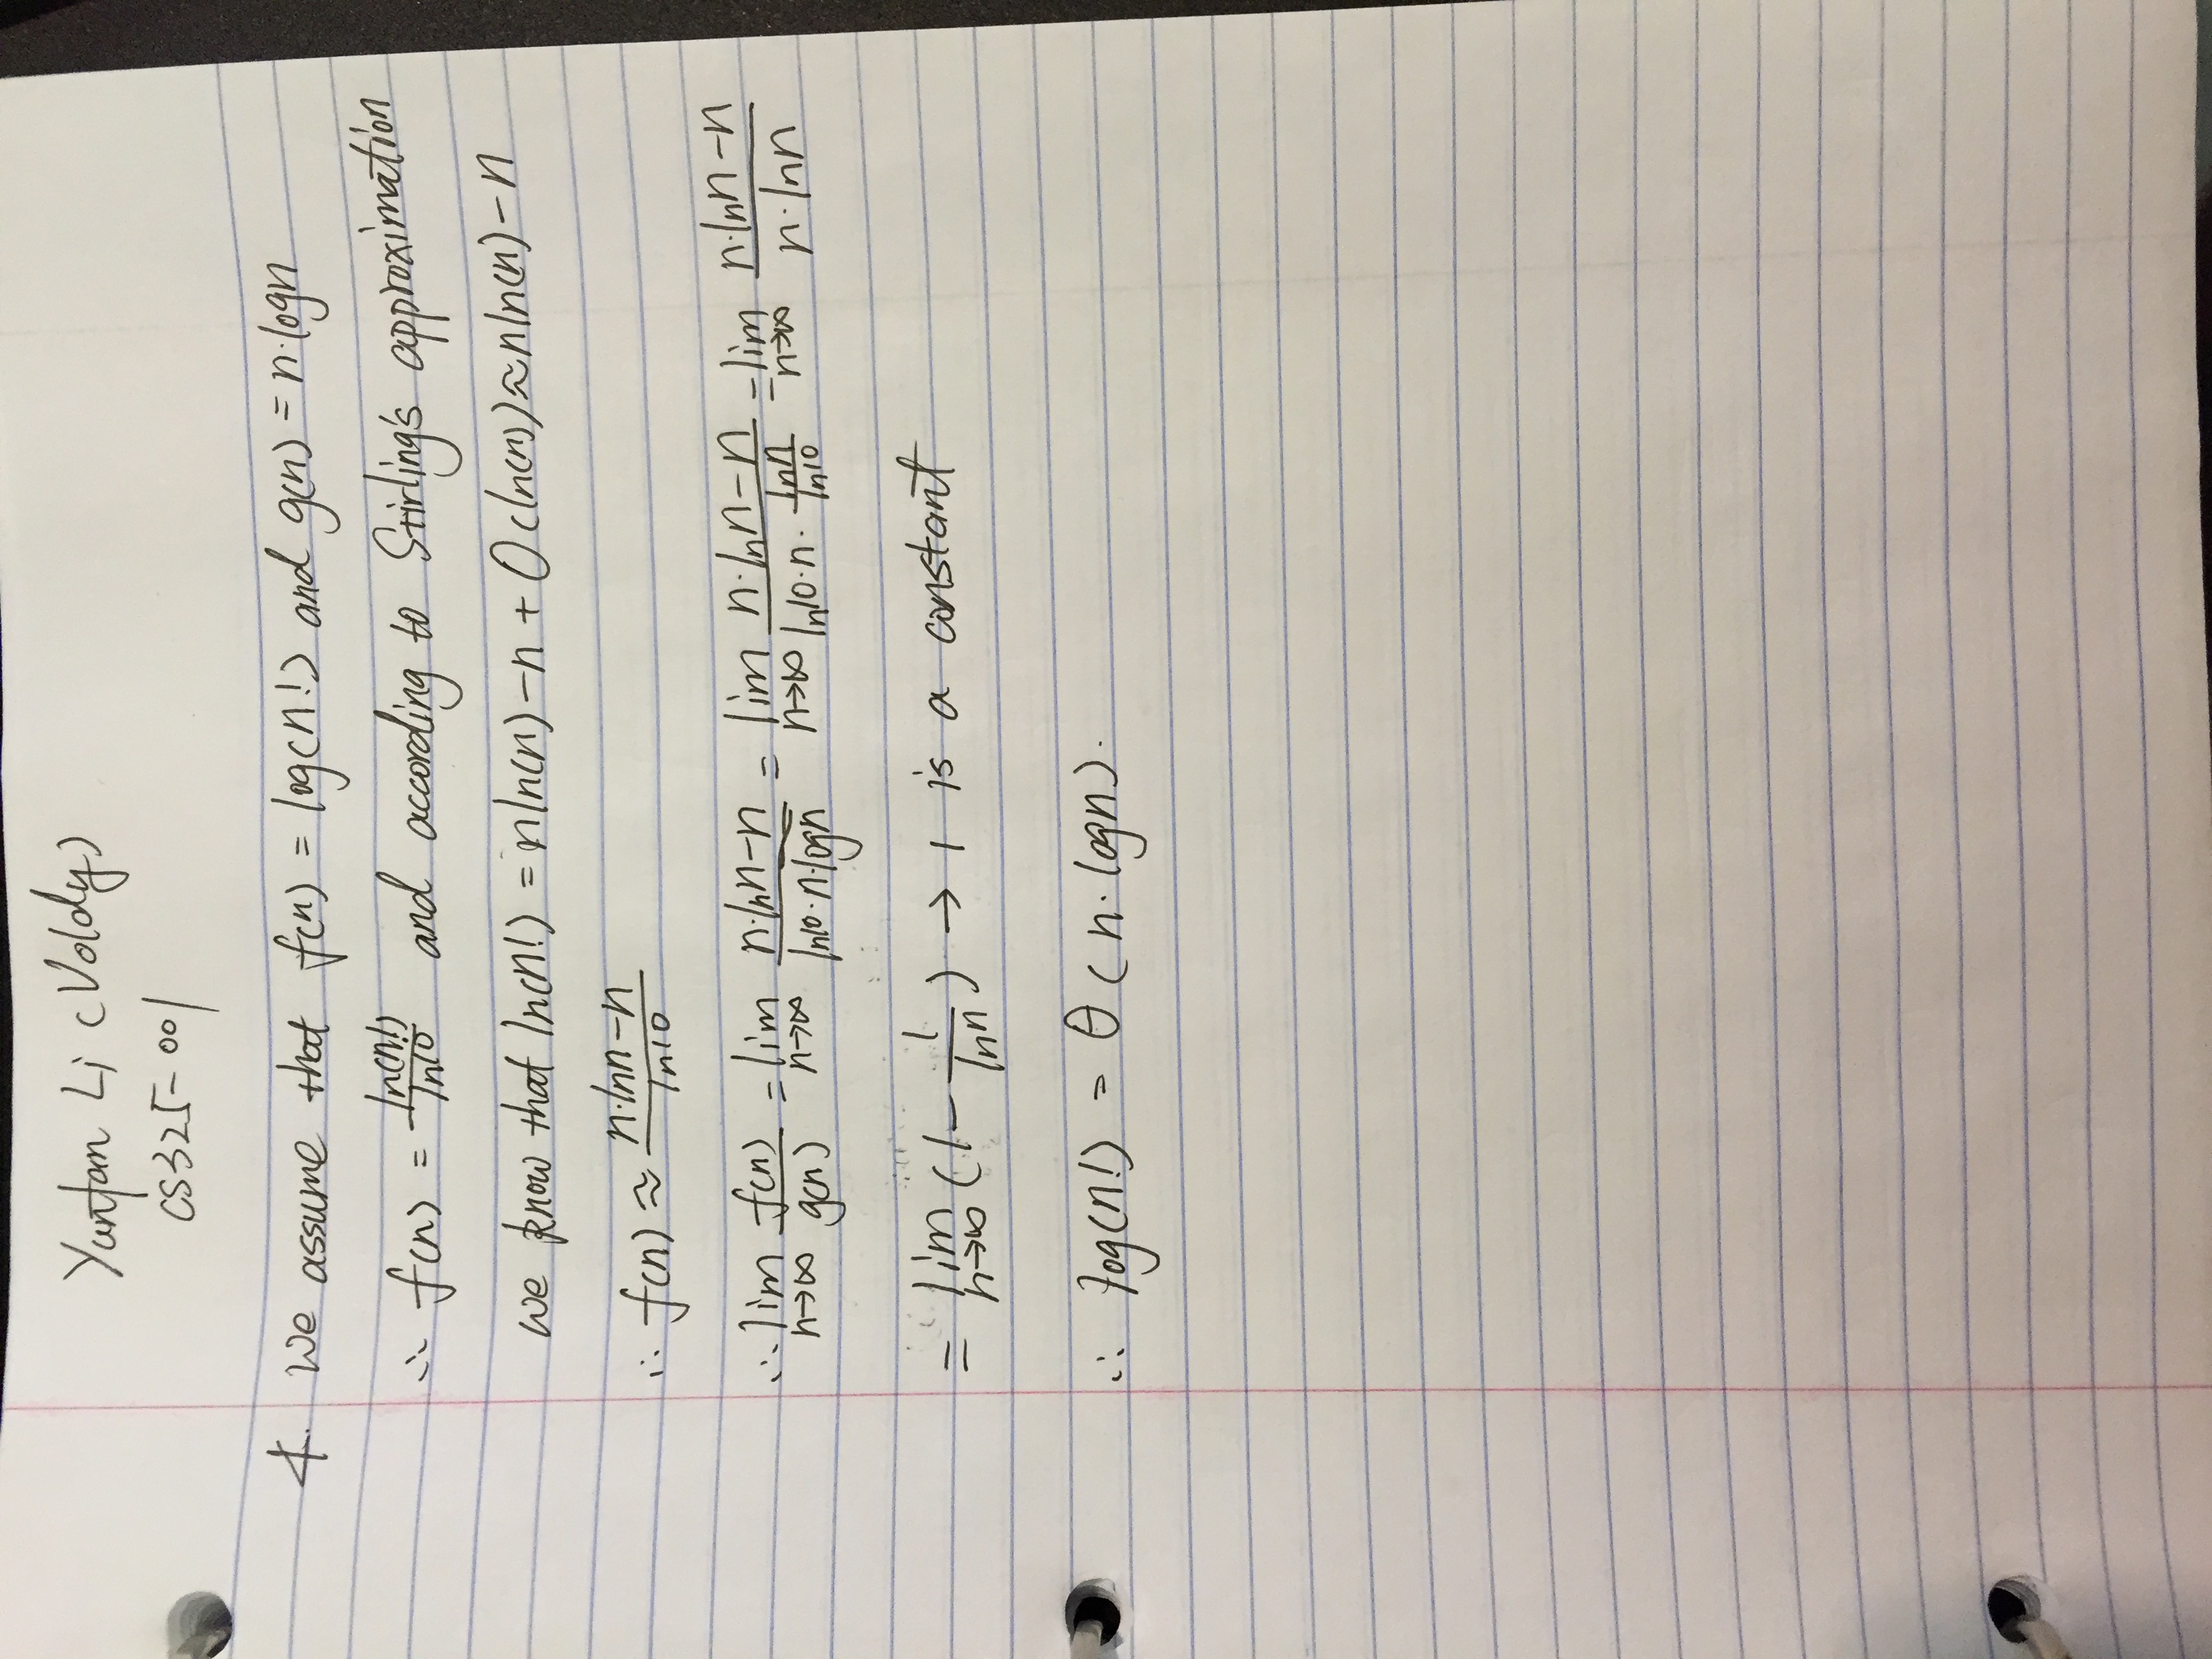 Yuntan Li (Voldy)
CS325-001
4. We assume that f(n) = log(n!) and g(n) = n·logn
∴ f(n) = ln(n!)/ln10 and according to Stirling's approximation
we know that ln(n!) = nln(n)-n + O(ln(n)) ≈ nln(n)-n
∴ f(n) ≈ n·lnn-n/ln10
∴ lim n→∞ f(n)/g(n) = lim n→∞ n·lnn-n/ln10·n·logn = lim n→∞ n·lnn-n/ln10·n·lnn/ln10 = lim n→∞ n·lnn-n/n·lnn
= lim n→∞ (1-1/lnn) → 1 is a constant
∴ log(n!) = θ(n·logn).